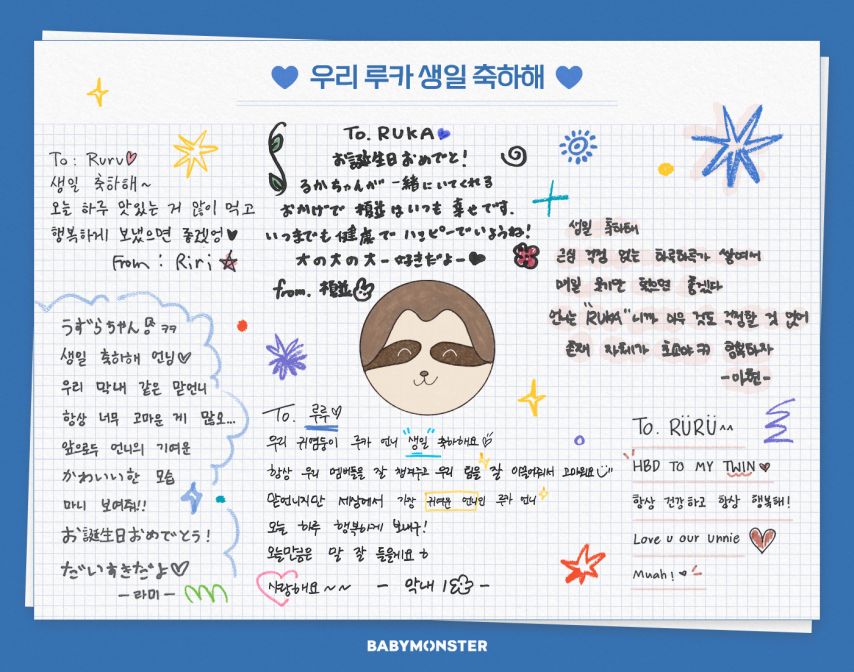 우리 루카 생일 축하해
To : Ruru
생일 축하해~
오늘 하루 맛있는 거 많이 먹고
행복하게 보냈으면 좋겠엉
From : Riri
To. RUKA
お誕生日おめでと!
るかちゃんが 一緒にいてくれる
おかげで 横並はいつも 幸せです.
いつまでも健康で ハッピーでいようね!
大の大の大ー好きだよー
from.
생일 축하해
근심 걱정 없는 하루하루가 쌓여서
매일 웃기만 했으면 좋겠다
언니는 "RUKA"니까 아무 것도 걱정할 것 없어
존재 자체가 최고야ㅋㅋ 행복하자
-아현-
うずらちゃん ㅋㅋ
생일 축하해 언님
우리 막내 같은 맏언니
항상 너무 고마운 게 많오...
앞으로두 언니의 기여운
かわいい한 모습
마니 보여쥬!!
お誕生日おめでとう!
だいすきだよ
-라미-
To. 루루
우리 귀염둥이 루카 언니 "생일" 축하해요
항상 우리 멤버들을 잘 챙겨주고 우리 팀을 잘 이끌어줘서 고마워요
맏언니지만 세상에서 가장 귀여운 언니인 루카 언니
오늘 하루 행복하게 보내구!
오늘만큼은 말 잘 들을게요 ㅎ
사랑해요~~ - 막내 -
To. RÜRÜ^^
HBD TO MY TWIN
항상 건강하고 항상 행복해!
Love u our unnie
Muah!
BABYMONSTER